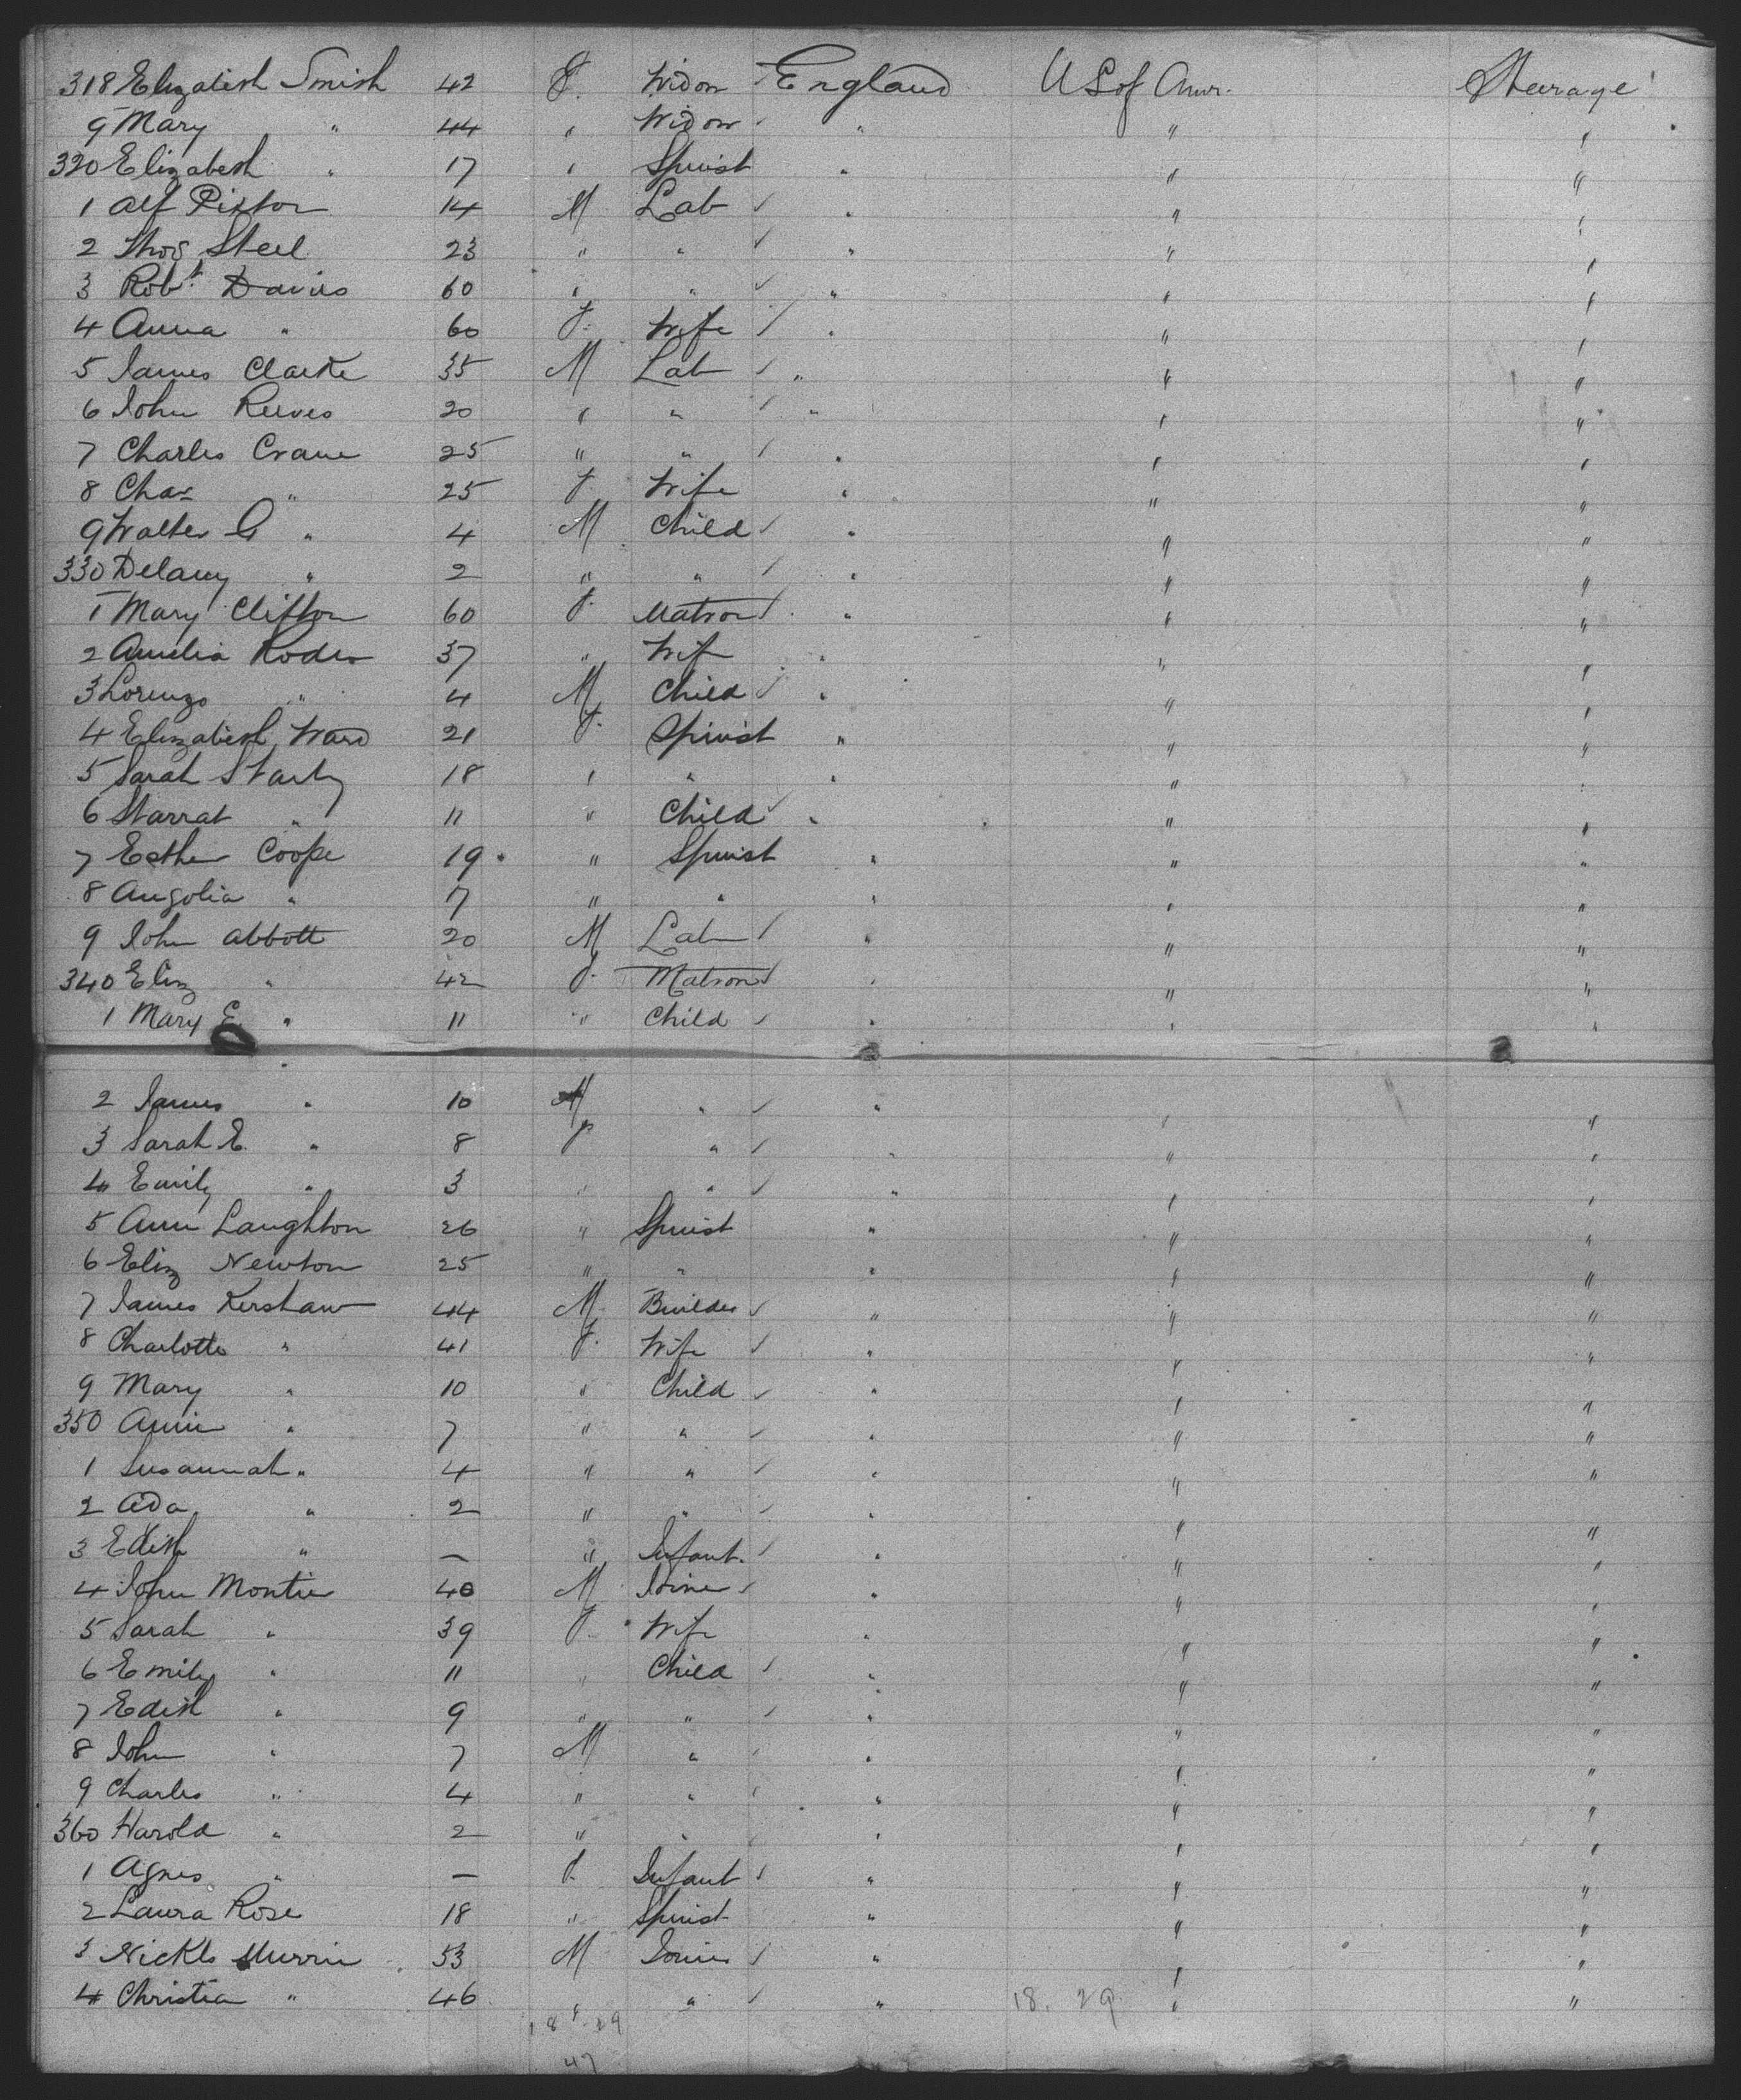 318 Elizabeth Smith 42 F. Widow England US of Amr. Steerage
9 Mary " 44 " Widow " " "
320 Elizabeth " 17 " Spinst " " "
1 Alf Pixton 14 M Lab " " "
2 Thos Steel 23 " " " " "
3 Robt. Davies 60 " " " " "
4 Anna " 60 F. Wife " " "
5 James Clarke 35 M Lab " " "
6 John Reeves 20 " " " " "
7 Charles Crane 25 " " " " "
8 Chas " 25 F. Wife " " "
9 Walter G " 4 M Child " " "
330 Delany " 2 " " " " "
1 Mary Clifton 60 F. Matron " " "
2 Amelia Rodes 37 " Wife " " "
3 Lorenzo " 4 M Child " " "
4 Elizabeth Ward 21 F. Spinst " " "
5 Sarah 18 " " " " "
6 Starrat " 11 " Child " " "
7 Esther Coope 19 " Spinst " " "
8 Angolia " 7 " " " " "
9 John Abbott 20 M Lab " " "
340 Eliz " 42 F. Matron " " "
1 Mary E. " 11 " Child " " "
2 James " 10 M " " " "
3 Sarah E. " 8 F " " " "
4 Emily " 3 " " " " "
5 Ann Laughton 26 " Spinst " " "
6 Eliz Newton 25 " " " " "
7 James Kershaw 44 M Builder " " "
8 Charlotte " 41 F. Wife " " "
9 Mary " 10 " Child " " "
350 Annie " 7 " " " " "
1 Susannah " 4 " " " " "
2 Ada " 2 " " " " "
3 Edith " — " Infant. " " "
4 John 40 M " " "
5 Sarah " 39 F. Wife " " "
6 Emily " 11 " Child " " "
7 Edith " 9 " " " " "
8 John " 7 M " " " "
9 Charles " 4 " " " " "
360 Harold " 2 " " " " "
1 Agnes " — F. Infant " " "
2 Laura Rose 18 " Spinst " " "
3 Nickls 53 M " " "
4 Christia " 46 " " " 18. 29 " "
47